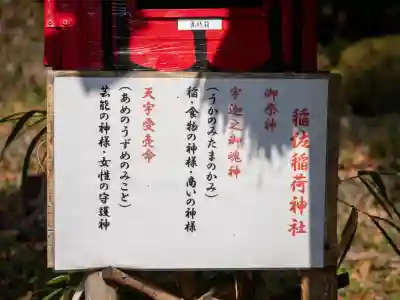 稲佐稲荷神社
御祭神
宇迦之御魂神
(うかのみたまのかみ)
稲・食物の神様・商いの神様
天宇受売命
(あめのうずめのみこと)
芸能の神様・女性の守護神